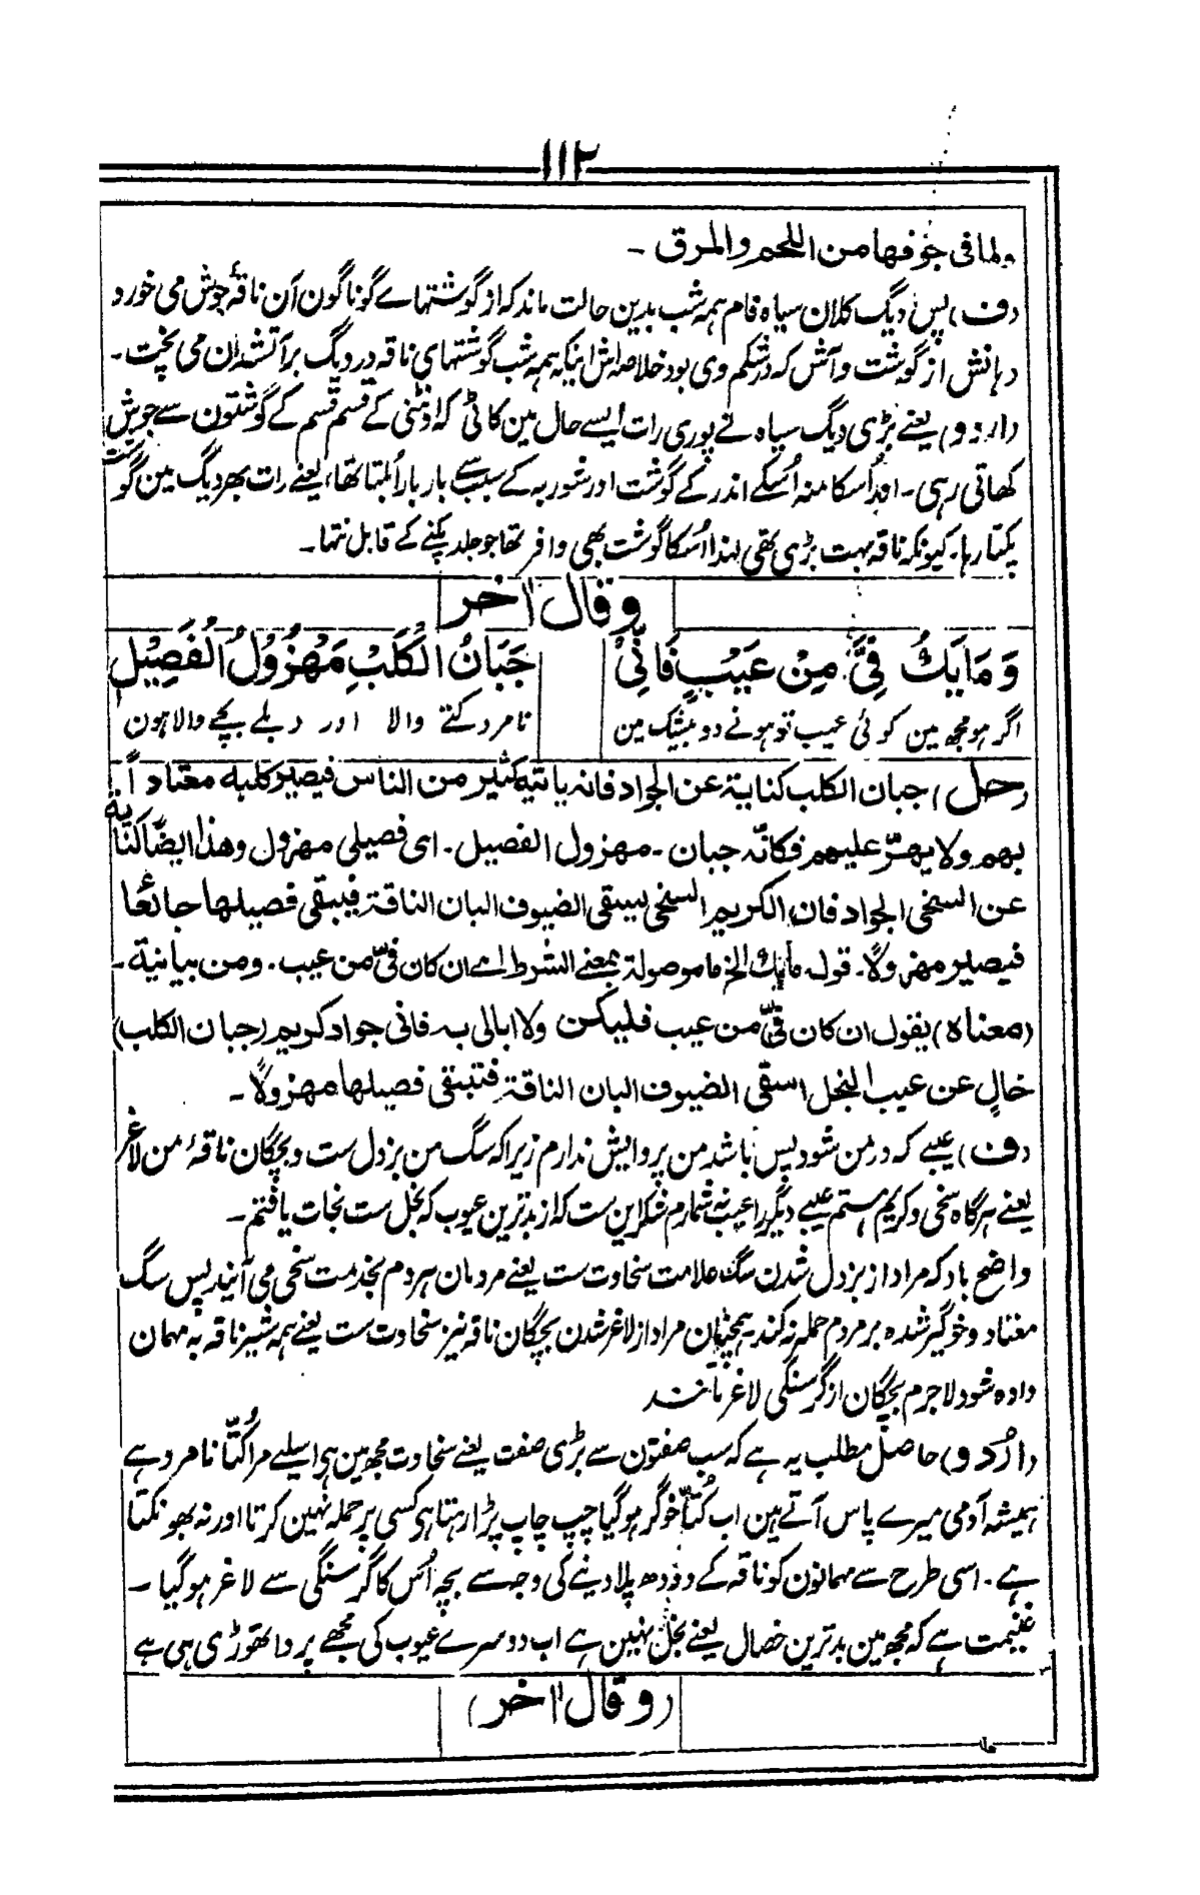 ۱۱۲
ولما فی جوفها من اللحم والمرق ۔
(ف) پس دیگ کلان سیاہ فام ہمہ شب بدین حالت ماند کہ از گوشتہاے گوناگون آن ناقہ جوش می خورد و
دہانش از گوشت و آش کہ درشکم وی بود خلاصہ اش اینکہ ہمہ شب گوشتہای ناقہ در دیگ بر آتشدان می پخت ۔
(اردو) یعنے بڑی دیگ سیاہ نے پوری رات ایسے حال مین کاٹی کہ اونٹنی کے قسم قسم کے گوشتون سے جوش
کھاتی رہی ۔ اور اُسکا منہ اُسکے اندر کے گوشت اور شوربہ کے سبب سے بار بار اُبلتا تھا، یعنے رات بھر دیگ مین گوشت
پکتا رہا ۔ کیونکہ ناقہ بہت بڑی تھی لہذا اُسکا گوشت بھی وافر تھا جو جلد پکنے کے قابل نتہا ۔
وقال اٰخر
وَمَا يَكُ فِيَّ مِنْ عَيْبٍ فَاِنِّيْ جَبَانُ الْكَلْبِ مَهْزُوْلُ الْفَصِيْلِ
اگر ہو مجھ مین کوئی عیب تو ہونے دو بیشک مین نامرد کتے والا اور دبلے بچے والا ہون
(حل) جبان الکلب کنایة عن الجواد فانه یاتیه کثیر من الناس فیصیر کلبه معتاداً
بهم ولا یهرّ علیهم فکانّه جبان ۔ مهزول الفصیل ۔ ای فصیلی مهزول وهذا ایضًا کنایة
عن السخی الجواد فان الکریم السخی لیسقی الضیوف البان الناقة فیبقی فصیلها جائعًا
فیصیر مهزولًا ۔ قوله مایك الخ ما موصولة بمعنے الشرط اے ان کان فیّ من عیب ۔ ومن بیانیة ۔
(معناه) یقول ان کان فیّ من عیب فلیکن ولا ابالی به فانی جواد کریم (جبان الکلب)
خالٍ عن عیب البخل اسقی الضیوف البان الناقة فتبقی فصیلها مهزولًا ۔
(ف) عیبے کہ در من شود پس باشد من پروایش ندارم زیراکہ سگ من بزدل ست و بچگان ناقۂ من لاغر
یعنے ہرگاہ سخی و کریم ہستم عیبے دیگر را عیب نہ شمارم شکر این ست کہ از بدترین عیوب کہ بخل ست نجات یافتم ۔
واضح باد کہ مراد از بزدل شدن سگ علامت سخاوت ست یعنے مردمان ہردم بخدمت سخی می آیند پس سگ
معتاد و خوگیر شدہ بر مردم حملہ نہ کند ہمچنان مراد از لاغر شدن بچگان ناقہ نیز سخاوت ست یعنے ہمہ شیر ناقہ بہ مہمان
دادہ شود لاجرم بچگان از گرسنگی لاغر مانند
(اُردو) حاصل مطلب یہ ہے کہ سب صفتون سے بڑی صفت یعنے سخاوت مجھ مین ہی اسلیے مرا کُتّا نامرد ہے
ہمیشہ آدمی میرے پاس آتے ہین اب کُتّا خوگر ہو گیا چپ چاپ پڑا رہتا ہی کسی پر حملہ نہین کرتا اور نہ بھونکتا
ہے ۔ اسی طرح سے مہمانون کو ناقہ کے دودھ پلا دینے کی وجہ سے بچہ اُس کا گرسنگی سے لاغر ہو گیا ۔
غنیمت ہے کہ مجھ مین بدترین خصال یعنے بخل نہین ہے اب دوسرے عیوب کی مجھے پروا تھوڑی ہی ہے
(وقال اٰخر)